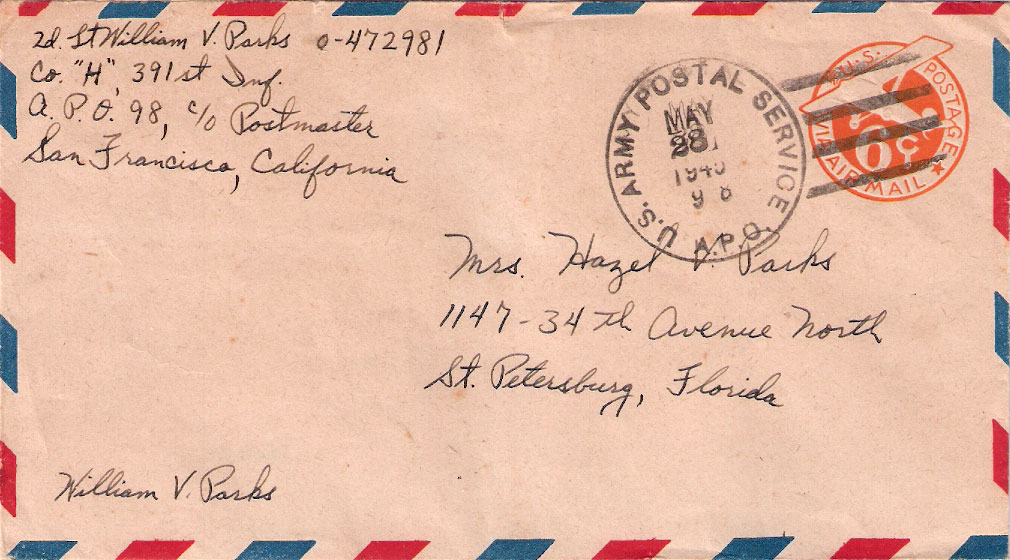 2d. Lt William V. Parks O-472981
Co. "H", 391st Inf.
A. P. O. 98, c/o Postmaster
San Francisco, California
U.S. ARMY POSTAL SERVICE
MAY
28
1945
98
A.P.O.
U.S. POSTAGE
6¢
VIA AIR MAIL
Mrs. Hazel V. Parks
1147-34th Avenue North
St. Petersburg, Florida
William V. Parks